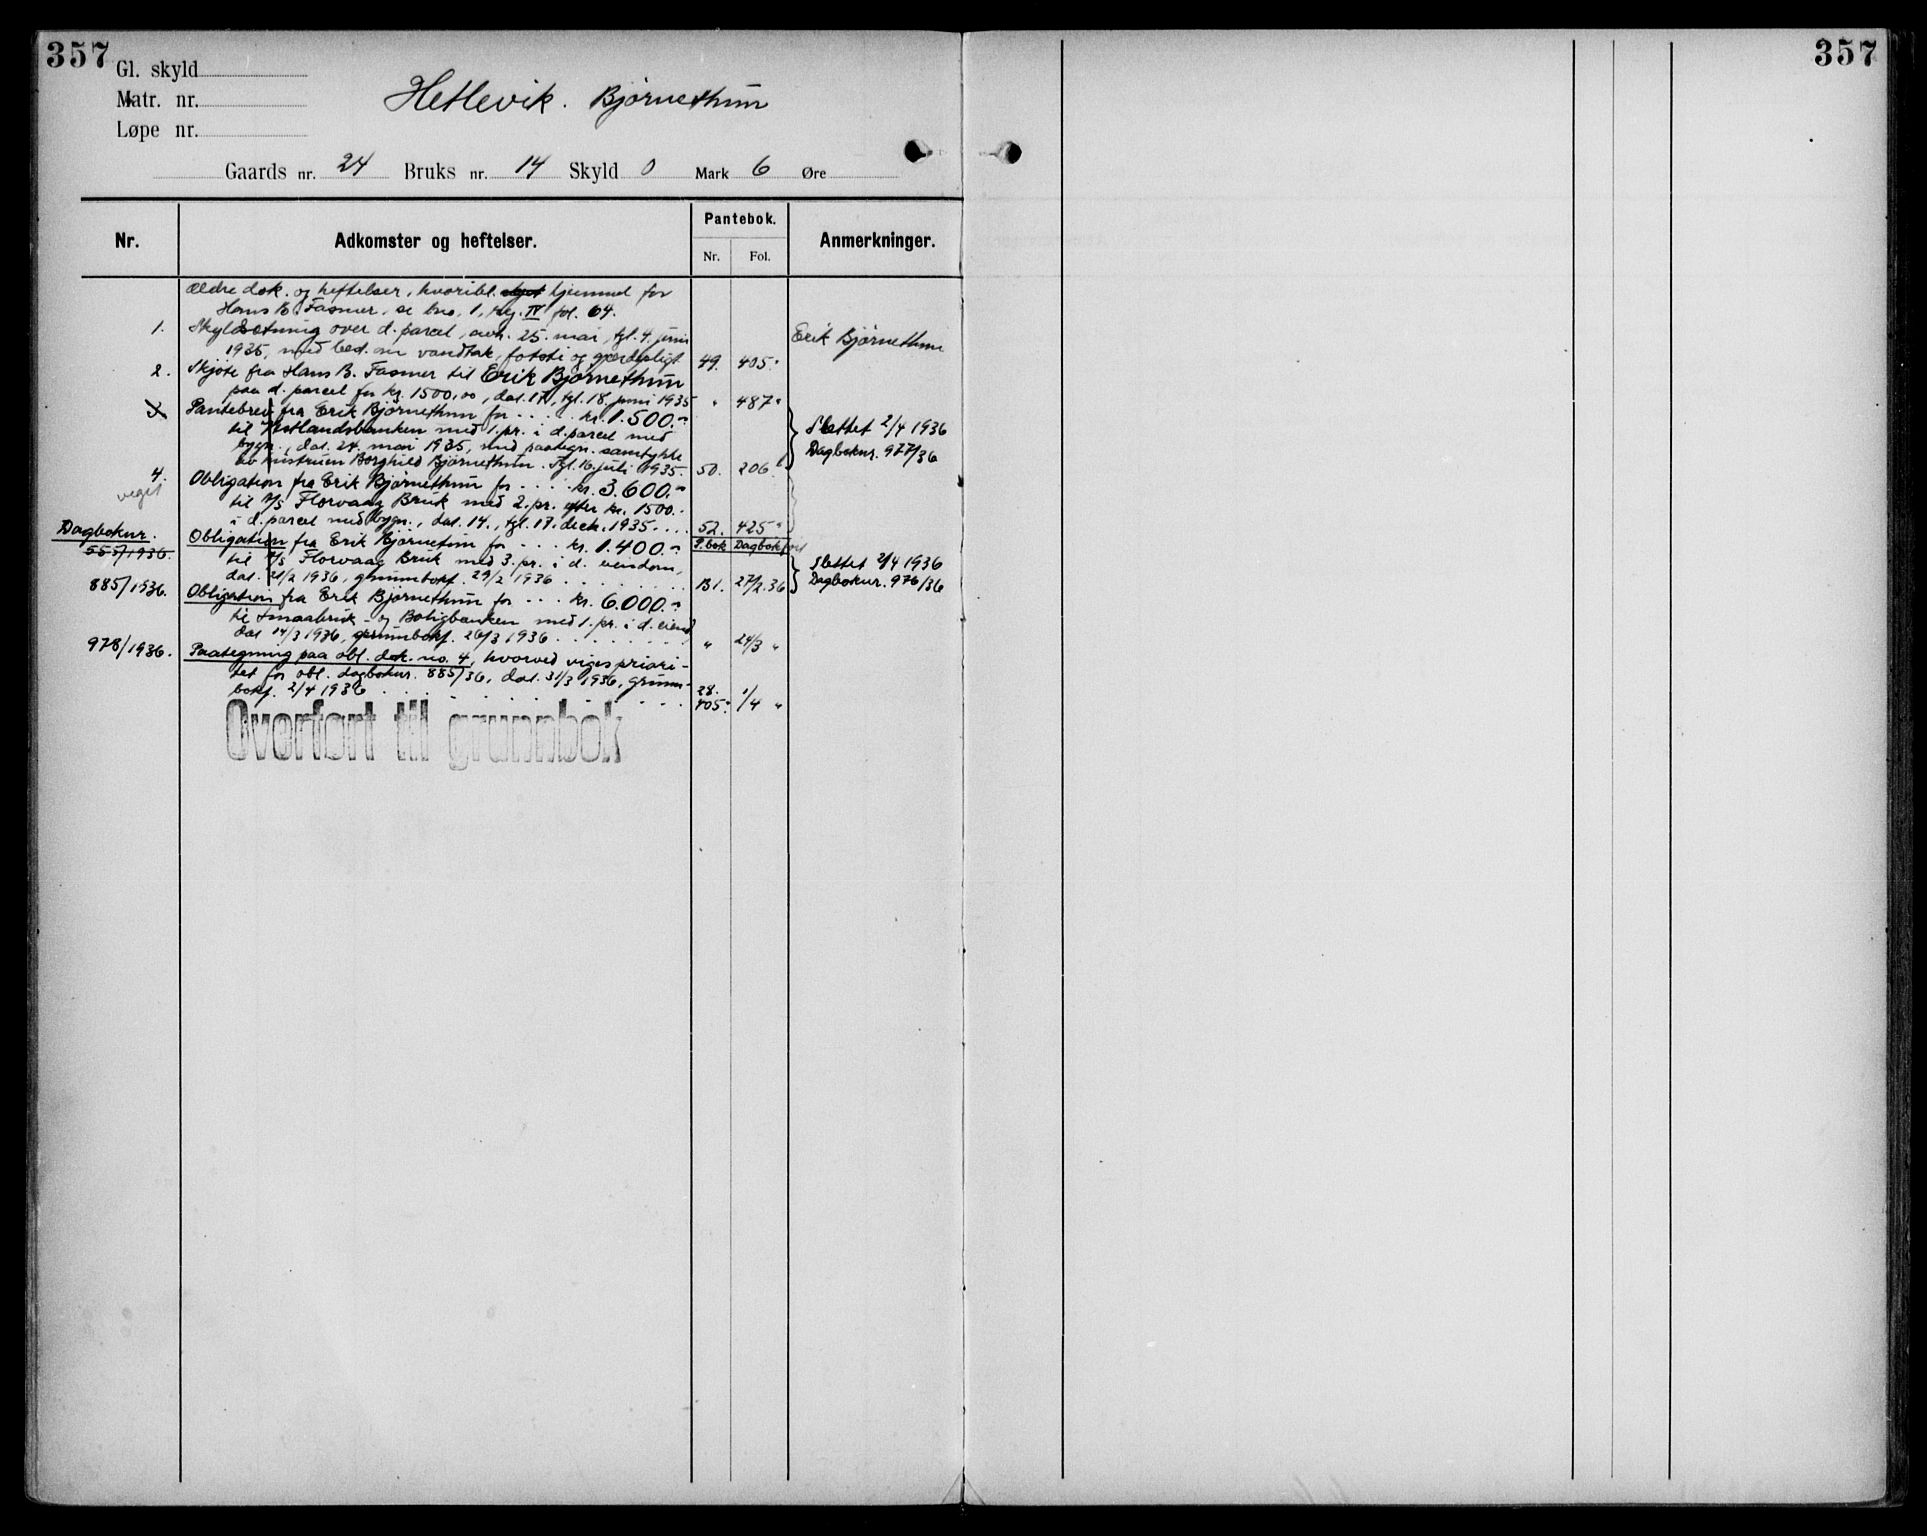 357
357
Gl. skyld
Matr. nr.
Løpe nr.
Hetlevik. Bjørnethun
Gaards nr. 24 Bruks nr. 14 Skyld 0 Mark 6 Øre
Nr. Adkomster og heftelser. Pantebok. Anmerkninger.
Nr. Fol.
Ældre dok. og heftelser, hvoribl. hjemmel for
Hans B. Fasmer, se bno. 1, reg. IV fol. 64.
1. Skyldsetning over d. parcel, avh. 25. mai, tgl. 4. juni
1935, med bed. om vandtak, fotsti og gjerdepligt 49. 405. Erik Bjørnethun
2. Skjøte fra Hans B. Fasmer til Erik Bjørnethun
paa d. parcel for kr. 1500,00, dat. 17., tgl. 18. juni 1935 " 487
3. Pantebrev fra Erik Bjørnethun for .... kr. 1.500.-
til Vestlandsbanken med 1. pr. i d. parcel med Slettet 2/4 1936
bygn., dat. 24. mai 1935, med paategn. samtykke Dagboknr. 977/36
av hustruen Borghild Bjørnethun. Tgl. 16. juli 1935. 50. 206
4. Obligation fra Erik Bjørnethun for .... kr. 3.600.-
veget til A/S Florvaag Bruk med 2. pr. efter kr. 1500.-
i d. parcel med bygn., dat. 14., tgl. 17. decb. 1935.... 52. 425
Dagboknr. P.bok Dagbokført
555/1936. Obligation fra Erik Bjørnetun for ... kr. 1.400.-
til A/S Florvaag Bruk med 3. pr. i d. eiendom, Slettet 2/4 1936
dat. 21/2 1936, grunnbokf. 29/2 1936 ....... B1. 27/2.36 Dagboknr. 976/36
885/1936. Obligation fra Erik Bjørnethun for ... kr. 6.000.-
til Smaabruk- og Boligbanken med 1. pr. i d. eiend.
dat. 14/3 1936, grunnbokf. 26/3 1936 ....... " 24/3 "
978/1936. Paategning paa obl. dok. no. 4, hvorved viges priori-
tet for obl. dagboknr. 885/36, dat. 31/3 1936, grunn-
bokf. 2/4 1936 ....... 28. 405. 1/4 "
Overført til grunnbok